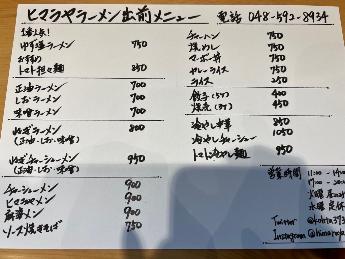 ヒマラヤラーメン出前メニュー 電話 048-592-8934
1番人気!
ゆず塩ラーメン 750
おすすめ
トマト担々麺 850
正油ラーメン 700
しおラーメン 700
味噌ラーメン 700
ねぎラーメン 800
(正油・しお・味噌)
ねぎチャーシューメン 950
(正油・しお・味噌)
チャーシューメン 900
ヒマラヤメン 900
麻婆メン 900
ソース焼きそば 750
チャーハン 750
焼めし 750
マーボ丼 750
カレーライス
ライス 250
餃子(5ケ) 400
焼売(5ケ) 450
冷やし中華 850
冷やしチャーシュー 1050
トマト冷やし麺 950
営業時間 11:00 -
17:00 -
火曜 昼
水曜 定休
Twitter
Instagram